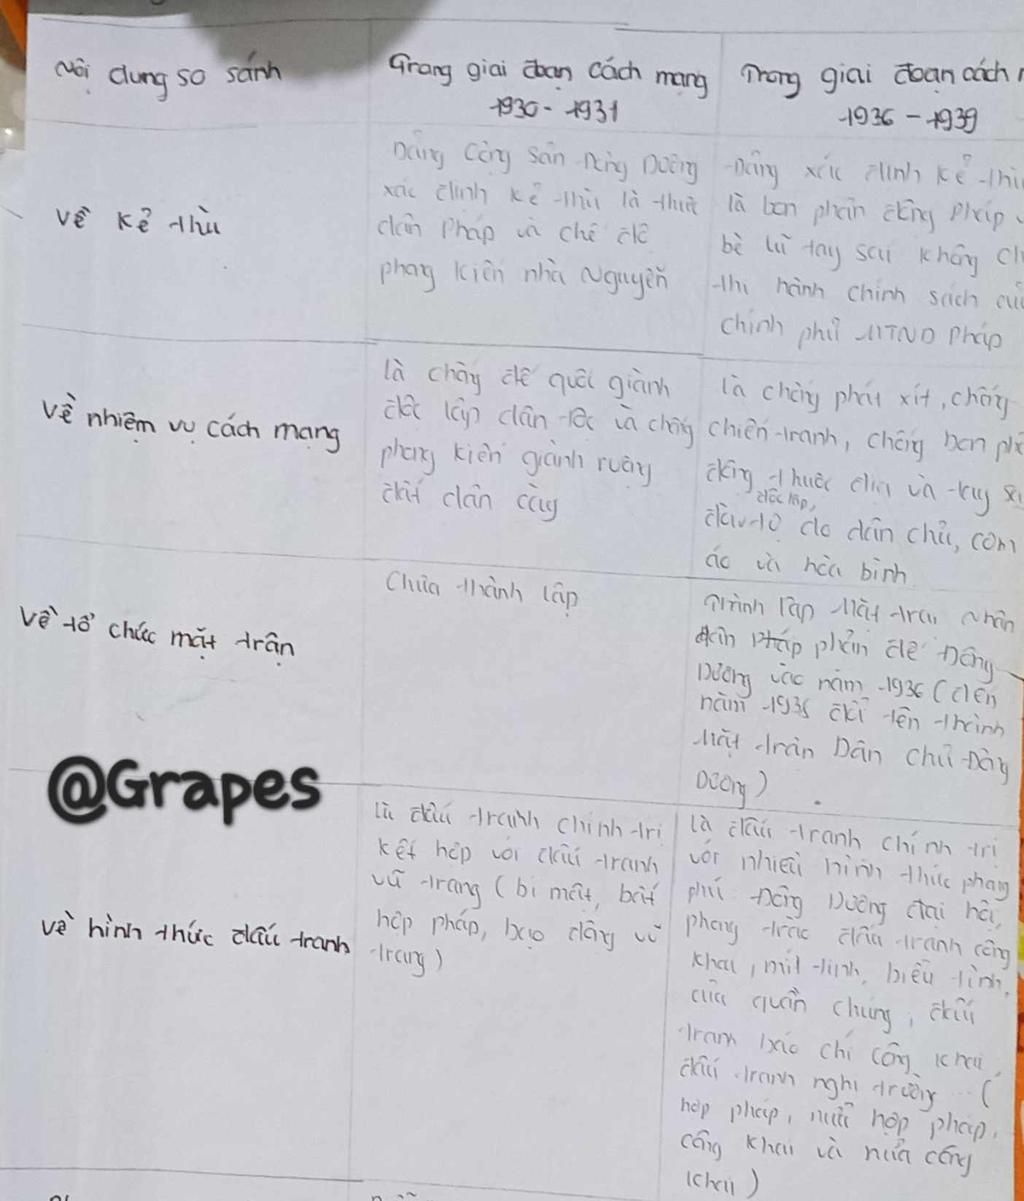 Nội dung so sánh
Trong giai đoạn cách mạng
1930 - 1931
Trong giai đoạn cách
1936 - 1939
Về kẻ thù
Đảng Cộng Sản Đông Dương
xác định kẻ thù là thực
dân Pháp và chế độ
phong kiến nhà Nguyễn
Đảng xác định kẻ thù
là bọn phản động Pháp
bè lũ tay sai không
thi hành chính sách của
chính phủ MTND Pháp
Về nhiệm vụ cách mạng
là chống đế quốc giành
độc lập dân tộc và chống
phong kiến giành ruộng
đất dân cày
là chống phát xít, chống
chiến tranh, chống bọn
động thuộc địa và tay
độc lập,
đòi tự do dân chủ, cơm
áo và hòa bình
Về tổ chức mặt trận
Chưa thành lập
Thành lập Mặt trận nhân
dân phản đế Đông
Dương vào năm 1936 (đến
năm 1938 đổi tên thành
Mặt trận Dân chủ Đông
Dương)
@Grapes
về hình thức đấu tranh
là đấu tranh chính trị
kết hợp với đấu tranh
vũ trang (bí mật, bất
hợp pháp, bạo động vũ
trang)
là đấu tranh chính trị
với nhiều hình thức phong
phú Đông Dương đại hội,
phong trào đấu tranh công
khai, mít tinh, biểu tình,
của quần chúng, đấu
tranh báo chí công khai,
đấu tranh nghị trường ... (
hợp pháp, nửa hợp pháp,
công khai và nửa công
khai)